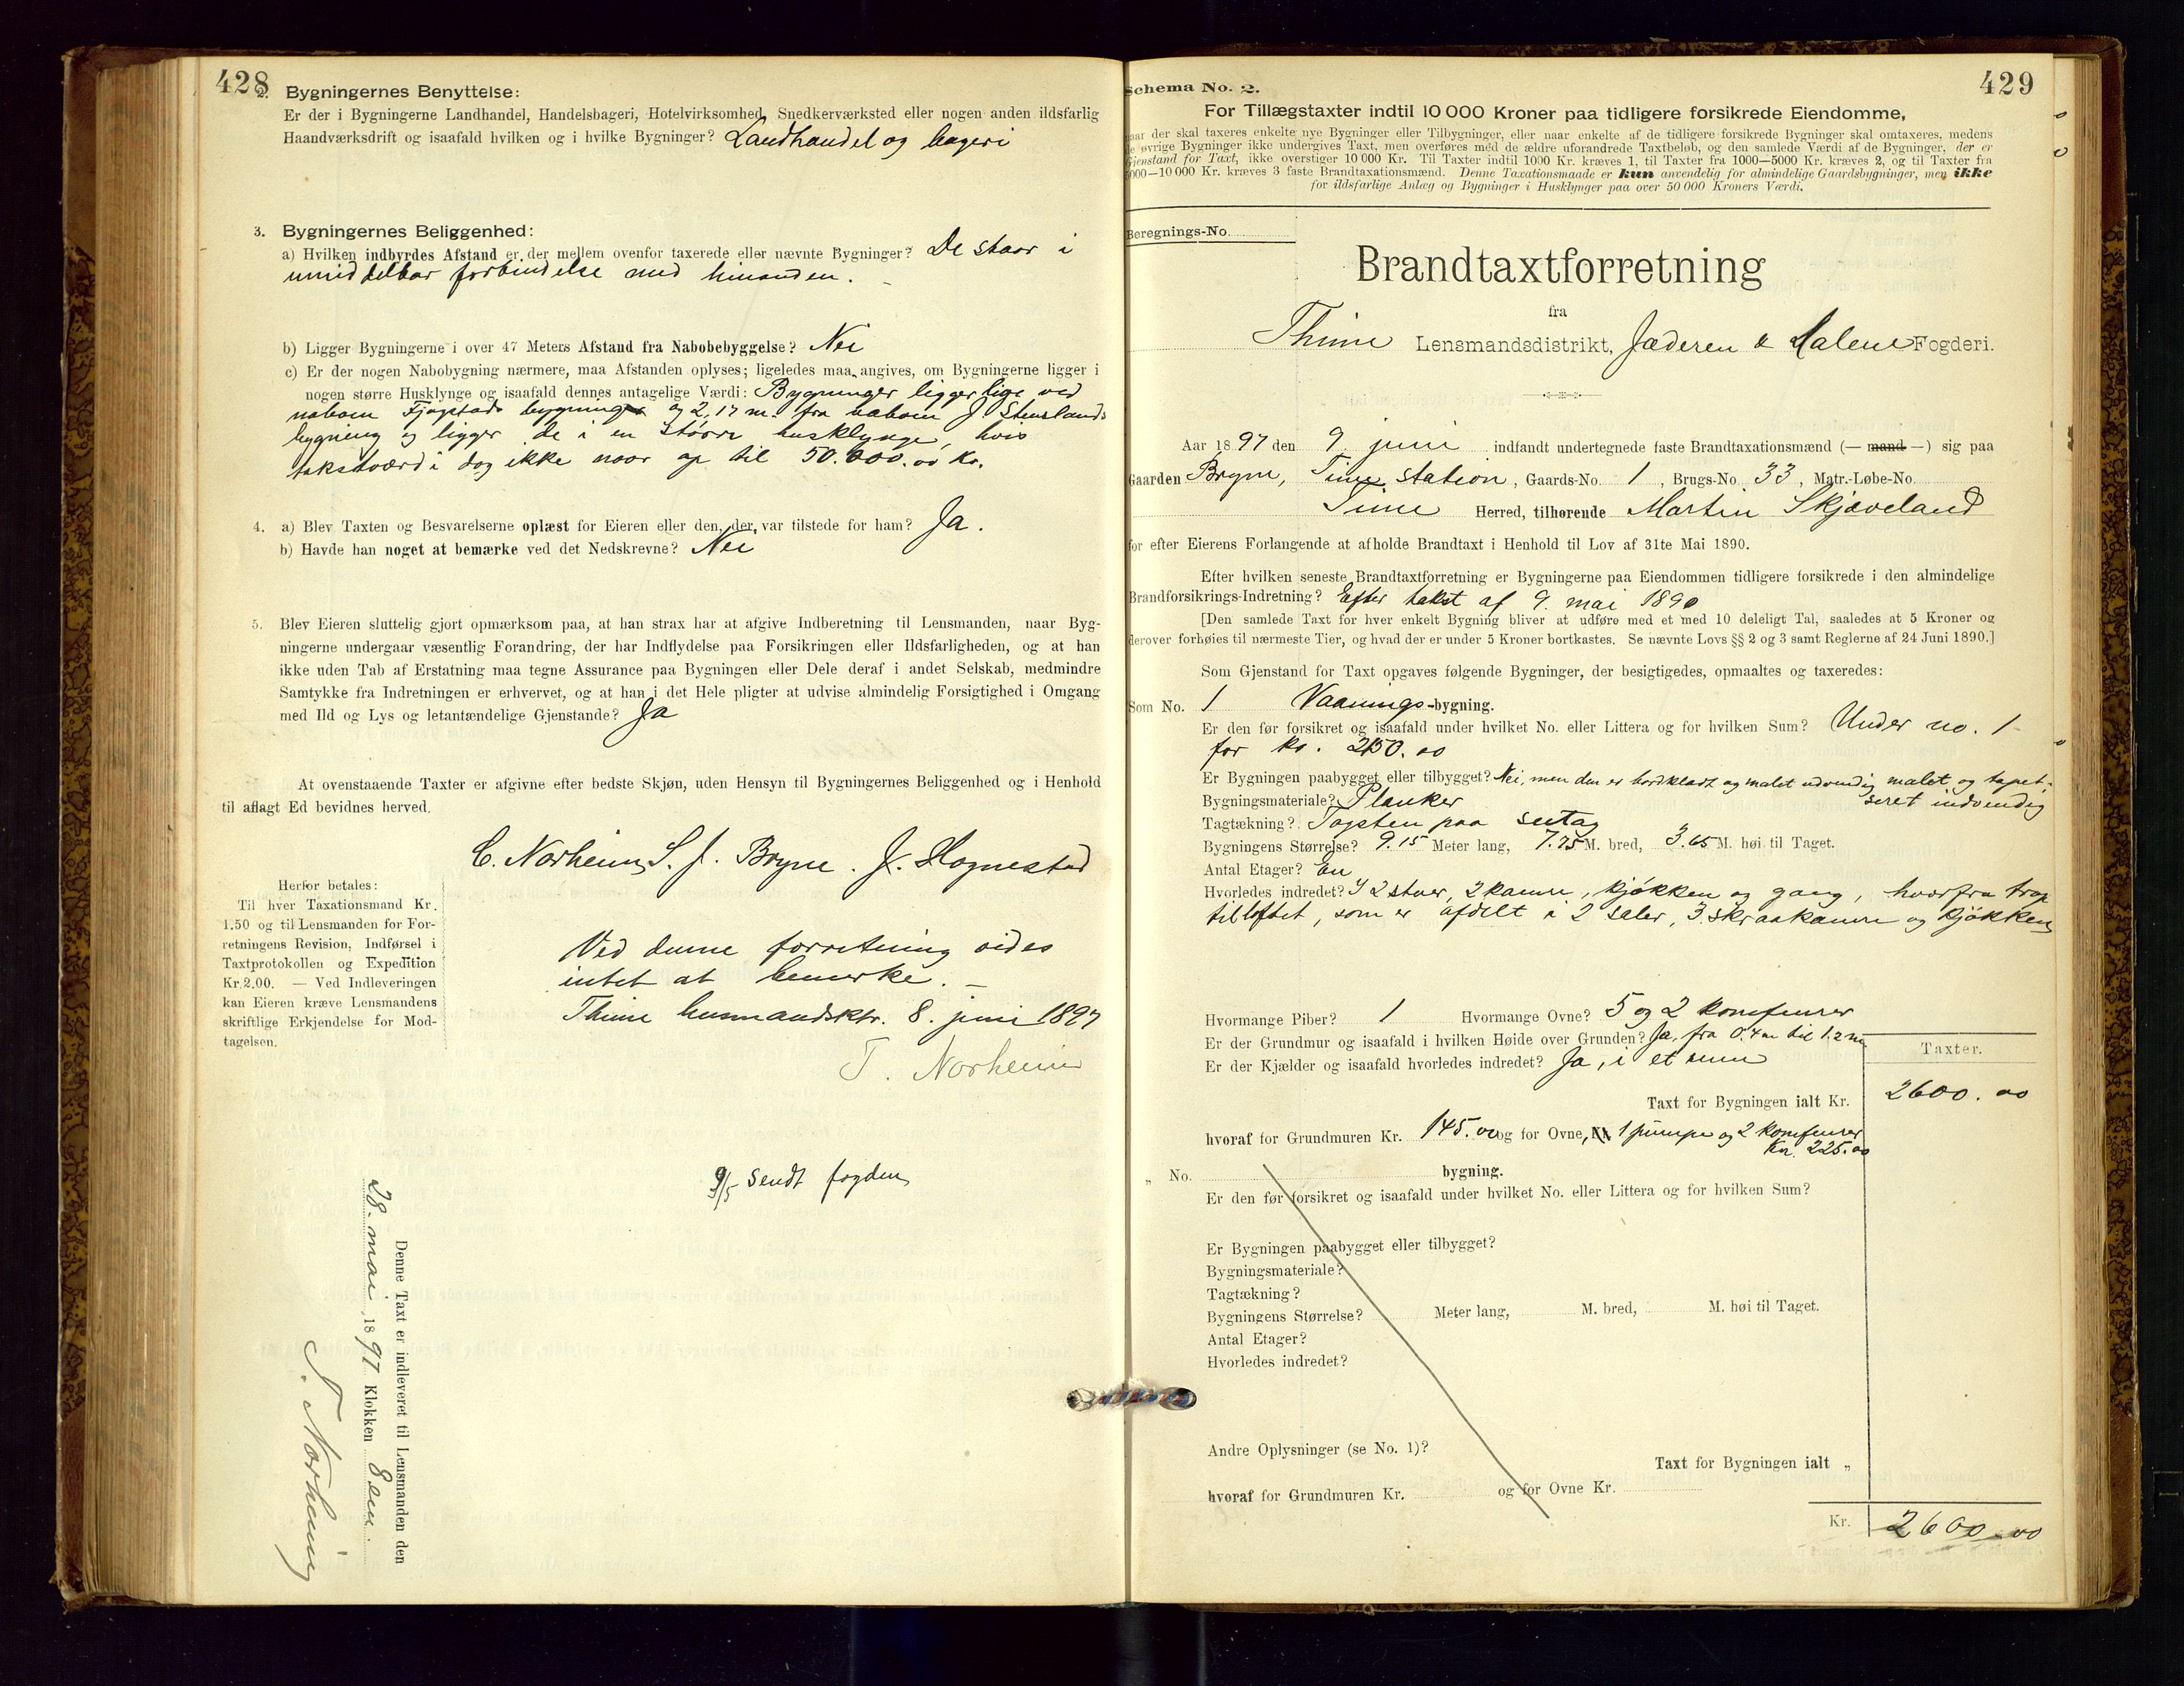 428
2. Bygningernes Benyttelse:
Er der i Bygningerne Landhandel, Handelsbageri, Hotelvirksomhed, Snedkerværksted eller nogen anden ildsfarlig
Haandværksdrift og isaafald hvilken og i hvilke Bygninger? Landhandel og bageri
3. Bygningernes Beliggenhed:
a) Hvilken indbyrdes Afstand er der mellem ovenfor taxerede eller nævnte Bygninger? De staar i
umiddelbar forbindelse med hinanden.
b) Ligger Bygningerne i over 47 Meters Afstand fra Nabobebyggelse? Nei
c) Er der nogen Nabobygning nærmere, maa Afstanden oplyses; ligeledes maa angives, om Bygningerne ligger i
nogen større Husklynge og isaafald dennes antagelige Værdi: Bygninger ligger lige ved
naboen bygning og 2,17 m. fra naboen J.
bygning og ligger de i en større husklynge, hvis
takstværdi dog ikke naar op til 50.000.00 Kr.
4. a) Blev Taxten og Besvarelserne oplæst for Eieren eller den, der var tilstede for ham? Ja.
b) Havde han noget at bemærke ved det Nedskrevne? Nei
5. Blev Eieren sluttelig gjort opmærksom paa, at han strax har at afgive Indberetning til Lensmanden, naar Byg-
ningerne undergaar væsentlig Forandring, der har Indflydelse paa Forsikringen eller Ildsfarligheden, og at han
ikke uden Tab af Erstatning maa tegne Assurance paa Bygningen eller Dele deraf i andet Selskab, medmindre
Samtykke fra Indretningen er erhvervet, og at han i det Hele pligter at udvise almindelig Forsigtighed i Omgang
med Ild og Lys og letantændelige Gjenstande? Ja
At ovenstaaende Taxter er afgivne efter bedste Skjøn, uden Hensyn til Bygningernes Beliggenhed og i Henhold
til aflagt Ed bevidnes herved.
C. Norheim S. J. Bryne. J. Hognestad
Herfor betales:
Til hver Taxationsmand Kr.
1.50 og til Lensmanden for For-
retningens Revision, Indførsel i
Taxtprotokollen og Expedition
Kr. 2.00. — Ved Indleveringen
kan Eieren kræve Lensmandens
skriftlige Erkjendelse for Mod-
tagelsen.
Ved denne forretning vides
intet at bemerke. —
Thime lensmandsktr. 8. juni 1897
T. Norheim
9/5 sendt fogden
Denne Taxt er indleveret til Lensmanden den
28. mai 1897 Klokken 8 em.
T. Norheim
429
Schema No. 2.
For Tillægstaxter indtil 10 000 Kroner paa tidligere forsikrede Eiendomme,
naar der skal taxeres enkelte nye Bygninger eller Tilbygninger, eller naar enkelte af de tidligere forsikrede Bygninger skal omtaxeres, medens
de øvrige Bygninger ikke undergives Taxt, men overføres med de ældre uforandrede Taxtbeløb, og den samlede Værdi af de Bygninger, der er
Gjenstand for Taxt, ikke overstiger 10 000 Kr. Til Taxter indtil 1000 Kr. kræves 1, til Taxter fra 1000—5000 Kr. kræves 2, og til Taxter fra
5000—10 000 Kr. kræves 3 faste Brandtaxationsmænd. Denne Taxationsmaade er kun anvendelig for almindelige Gaardsbygninger, men ikke
for ildsfarlige Anlæg og Bygninger i Husklynger paa over 50 000 Kroners Værdi.
Beregnings-No.
Brandtaxtforretning
fra
Thime Lensmandsdistrikt, Jæderen & Dalene Fogderi.
Aar 1897 den 9. juni indfandt undertegnede faste Brandtaxationsmænd (— mand —) sig paa
Gaarden Bryne, Time station, Gaards-No. 1, Brugs-No. 33, Matr.-Løbe-No.
Time Herred, tilhørende Martin Skjæveland
for efter Eierens Forlangende at afholde Brandtaxt i Henhold til Lov af 31te Mai 1890.
Efter hvilken seneste Brandtaxtforretning er Bygningerne paa Eiendommen tidligere forsikrede i den almindelige
Brandforsikrings-Indretning? Efter takst af 9. mai 1890
[Den samlede Taxt for hver enkelt Bygning bliver at udføre med et med 10 deleligt Tal, saaledes at 5 Kroner og
derover forhøies til nærmeste Tier, og hvad der er under 5 Kroner bortkastes. Se nævnte Lovs §§ 2 og 3 samt Reglerne af 24 Juni 1890.]
Som Gjenstand for Taxt opgaves følgende Bygninger, der besigtigedes, opmaaltes og taxeredes:
Som No. 1 Vaanings-bygning.
Er den før forsikret og isaafald under hvilket No. eller Littera og for hvilken Sum? Under no. 1
for kr. 2150.00
Er Bygningen paabygget eller tilbygget? Nei, men den er bordkladt og malet udvendig malet og tapet-
seret indvendig
Bygningsmateriale? Planker
Tagtækning? Tagsten paa sutag
Bygningens Størrelse? 9.15 Meter lang, 7.75 M. bred, 3.65 M. høi til Taget.
Antal Etager? En
Hvorledes indredet? I 2 stuer, 2 kamre, kjøkken og gang, hvorfra trap
til loftet, som er afdelt i 2 saler, 3 skraakamre og kjøkken
Hvormange Piber? 1 Hvormange Ovne? 5 og 2 komfurer
Er der Grundmur og isaafald i hvilken Høide over Grunden? Ja, fra 0.4 m til 1.2 m
Er der Kjælder og isaafald hvorledes indredet? Ja, i et rum
Taxter.
Taxt for Bygningen ialt Kr. 2600.00
hvoraf for Grundmuren Kr. 145.00 og for Ovne, 1 pumpe og 2 komfurer
Kr. 225.00
„ No. bygning.
Er den før forsikret og isaafald under hvilket No. eller Littera og for hvilken Sum?
Er Bygningen paabygget eller tilbygget?
Bygningsmateriale?
Tagtækning?
Bygningens Størrelse? Meter lang, M. bred, M. høi til Taget.
Antal Etager?
Hvorledes indredet?
Andre Oplysninger (se No. 1)?
Taxt for Bygningen ialt „
hvoraf for Grundmuren Kr. og for Ovne Kr.
Kr. 2600.00